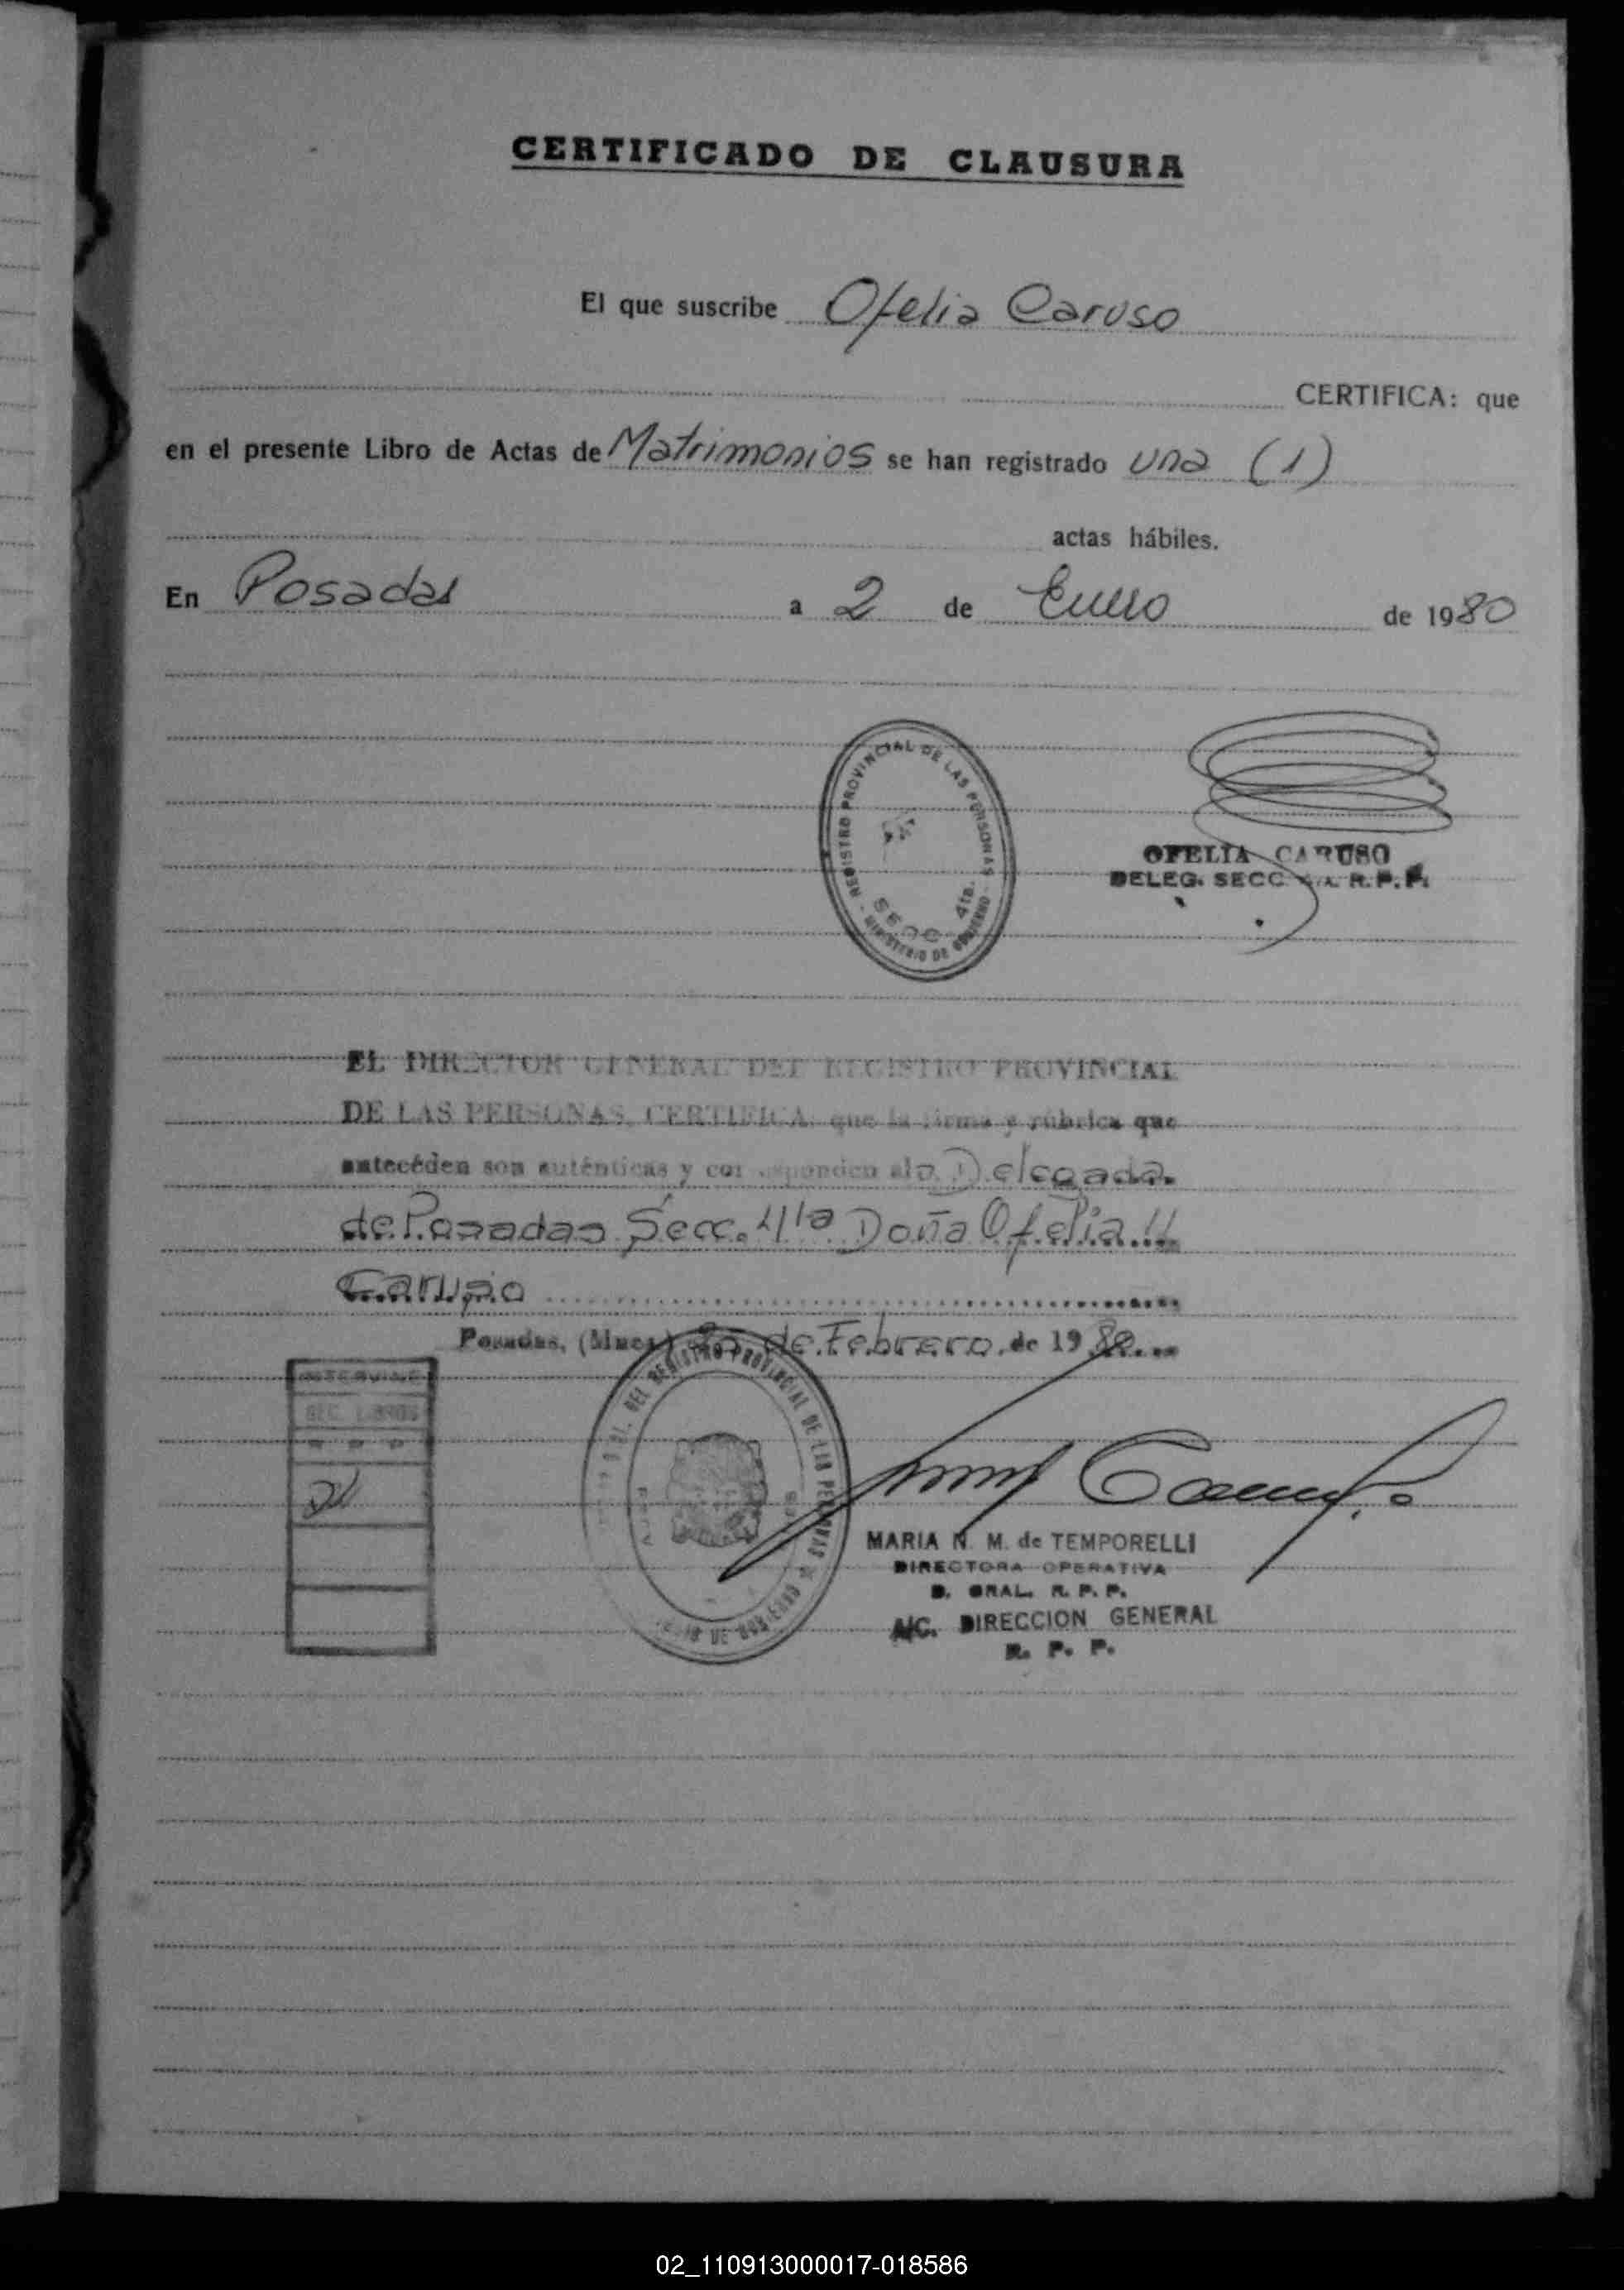 CERTIFICADO DE CLAUSURA
El que suscribe Ofelia Caruso
CERTIFICA: que
en el presente Libro de Actas de Matrimonios se han registrado una (1)
actas hábiles.
En Posadas a 2 de Enero de 1980
REGISTRO PROVINCIAL DE LAS PERSONAS
SECC. 4ta.
MINISTERIO DE GOBIERNO
OFELIA CARUSO
DELEG. SECC. R. P. P.
EL DIRECTOR GENERAL DEL REGISTRO PROVINCIAL
DE LAS PERSONAS, CERTIFICA: que la firma y rúbrica que
anteceden son auténticas y corresponden a la Delegada
de Posadas Secc. 4ta Doña Ofelia
Caruso
Posadas, (Mnes) de Febrero de 1980
INTERVINO
SEC. LIBROS
DEL REGISTRO PROVINCIAL DE LAS PERSONAS
DE GOBIERNO
MARIA N. M. de TEMPORELLI
DIRECTORA OPERATIVA
D. GRAL. R. P. P.
A/C. DIRECCION GENERAL
R. P. P.
02_110913000017-018586